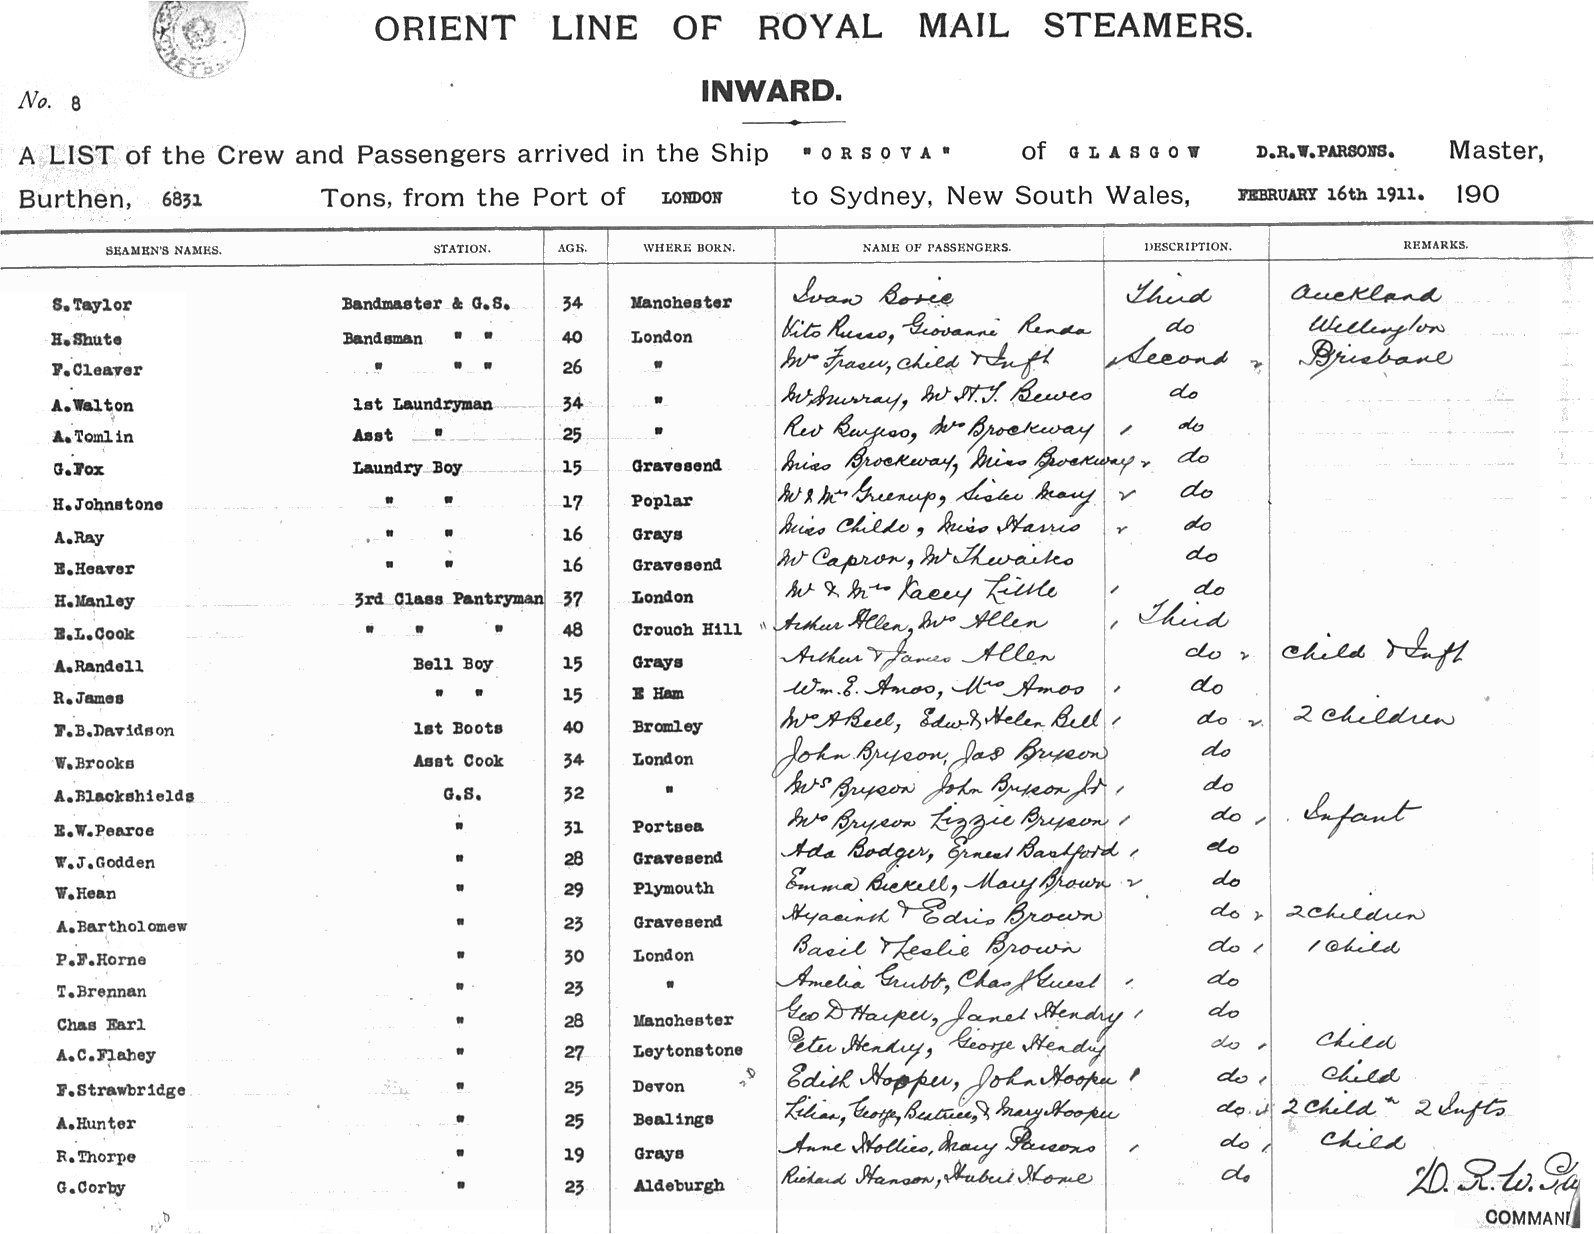 ORIENT LINE OF ROYAL MAIL STEAMERS.
INWARD.
No. 8
A LIST of the Crew and Passengers arrived in the Ship "ORSOVA" of GLASGOW D.R.W.PARSONS. Master,
Burthen, 6831 Tons, from the Port of LONDON to Sydney, New South Wales, FEBRUARY 16th 1911. 190
SEAMEN'S NAMES. STATION. AGE. WHERE BORN. NAME OF PASSENGERS. DESCRIPTION. REMARKS.
S.Taylor Bandmaster & G.S. 34 Manchester Ivan Boric Third Auckland
H.Shute Bandsman " " 40 London Vito Russo, Giovanni Renda do Wellington
F.Cleaver " " " 26 " Mrs Fraser, Child & Inft Second Brisbane
A.Walton 1st Laundryman 34 " Mr Murray, Mr H.T. Bewes do
A.Tomlin Asst " 25 " Rev Burgess, Mrs Brockway do
G.Fox Laundry Boy 15 Gravesend Miss Brockway, Miss Brockway do
H.Johnstone " " 17 Poplar Mr & Mrs Greenup, Sister Mary do
A.Ray " " 16 Grays Miss Childe, Miss Harris do
E.Heaver " " 16 Gravesend Mr Capron, Mr Thwaites do
H.Manley 3rd Class Pantryman 37 London Mr & Mrs Little do
E.L.Cook " " " 48 Crouch Hill Arthur Allen, Mrs Allen Third
A.Randell Bell Boy 15 Grays Arthur & James Allen do Child & Inft
R.James " " 15 E Ham Wm. E. Amos, Mrs Amos do
F.B.Davidson 1st Boots 40 Bromley Mrs A Bell, Edw & Helen Bell do 2 Children
W.Brooks Asst Cook 34 London John Bryson, Jas Bryson do
A.Blackshields G.S. 32 " Mrs Bryson John Bryson Jr do
E.W.Pearce " 31 Portsea Mrs Bryson Lizzie Bryson do Infant
W.J.Godden " 28 Gravesend Ada Bodger, Ernest Bashford do
W.Hean " 29 Plymouth Emma Bickell, Mary Brown do
A.Bartholomew " 23 Gravesend Hyacinth & Edris Brown do 2 Children
P.F.Horne " 30 London Basil & Leslie Brown do 1 Child
T.Brennan " 23 " Amelia Grubb, Chas J Guest do
Chas Earl " 28 Manchester Geo D Harper, Janet Hendry do
A.C.Flahey " 27 Leytonstone Peter Hendry, George Hendry do Child
F.Strawbridge " 25 Devon Edith Hooper, John Hooper do Child
A.Hunter " 25 Bealings Lilian, George, Beatrice, & Mary Hooper do 2 Childn 2 Infts
R.Thorpe " 19 Grays Anne Hollies, Mary Parsons do Child
G.Corby " 23 Aldeburgh Richard Hanson, Hubert Home do
D. R. W. Pa
COMMAN